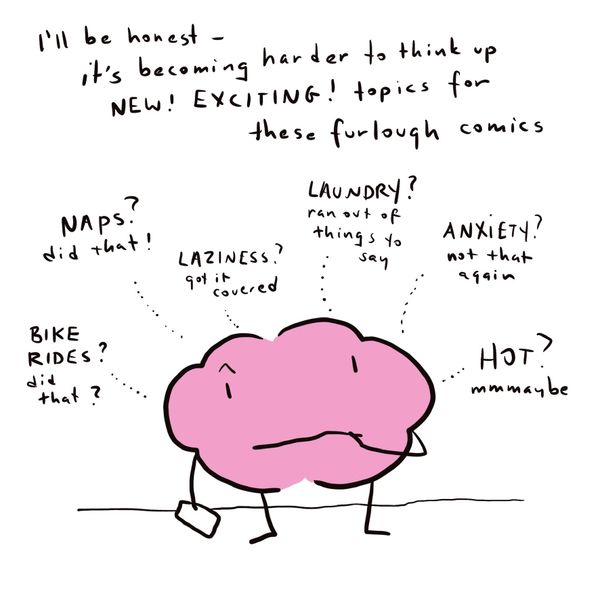 I'll be honest -
it's becoming harder to think up
NEW! EXCITING! topics for
these furlough comics
NAPS?
did that!
LAZINESS?
got it
covered
LAUNDRY?
ran out of
things yo
say
ANXIETY?
not that
again
BIKE
RIDES?
did
that?
HOT?
mmmaybe